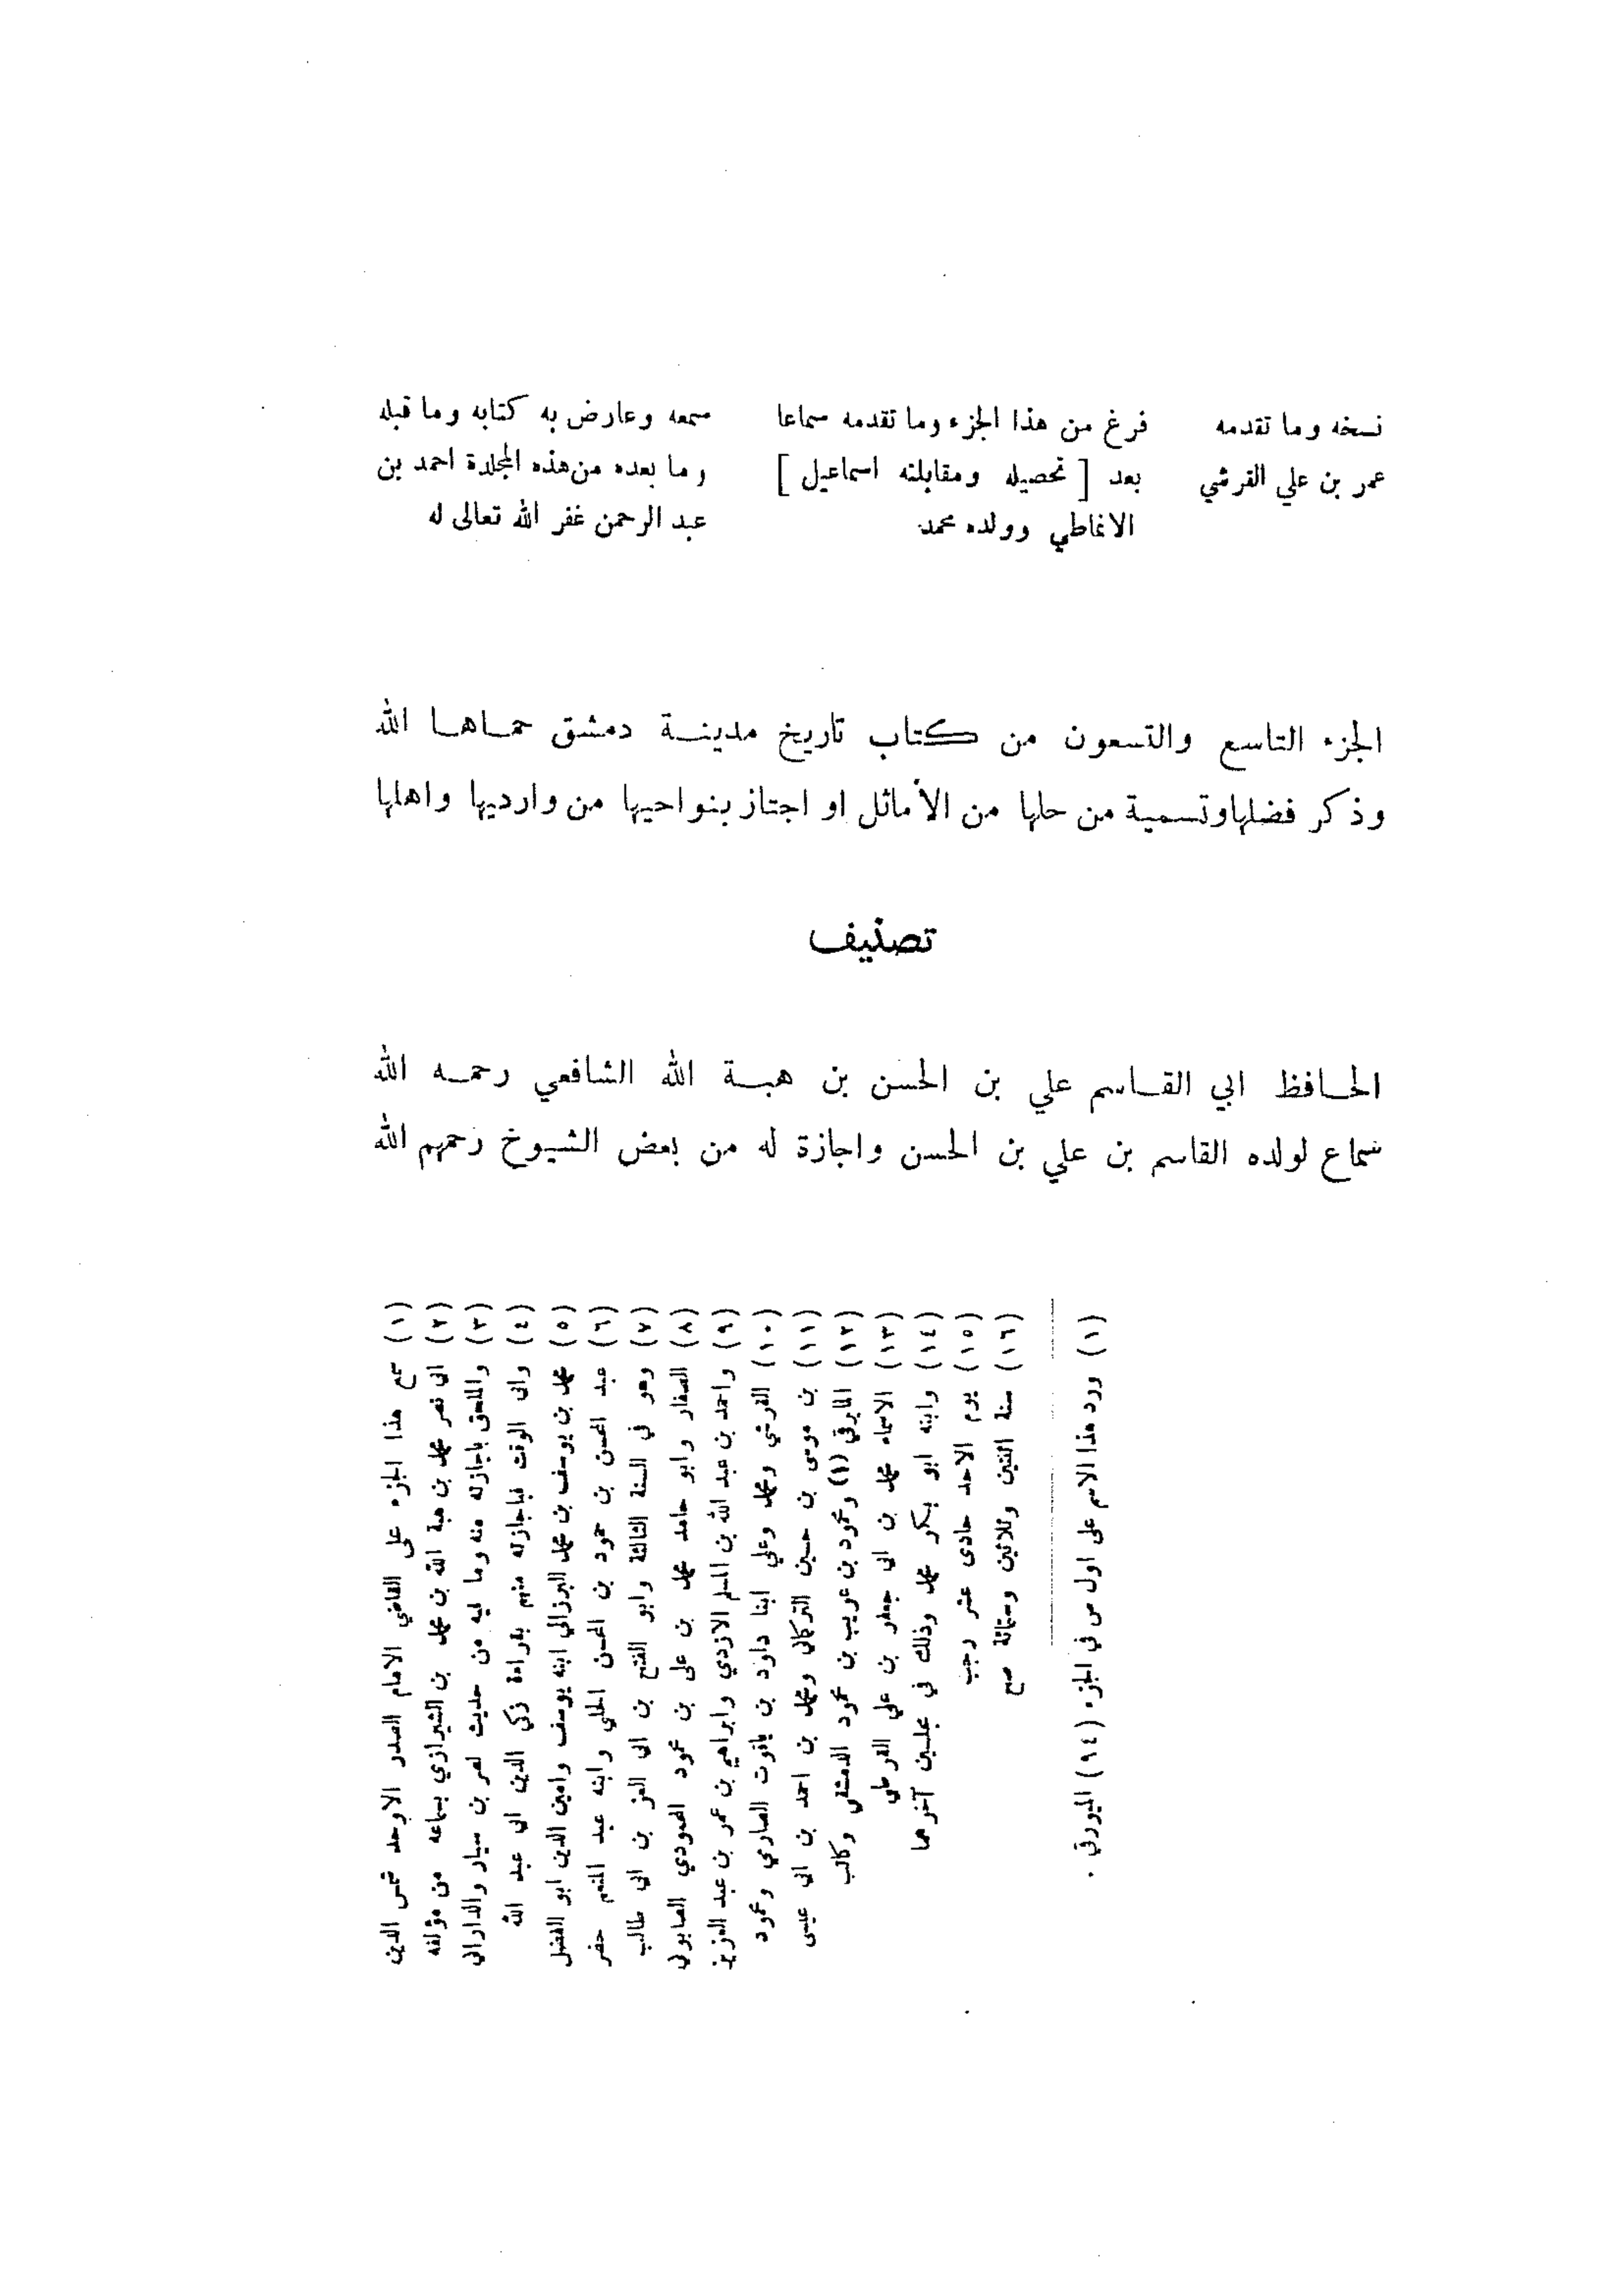 نسخه وما تقدمه
عمر بن علي القرشي
فرغ من هذا الجزء وما تقدمه سماعا
بعد [ تحصيله ومقابلته اسماعيل ]
الانماطي وولده محمد
سمعه وعارض به كتابه وما قبله
وما بعده من هذه المجلدة احمد بن
عبد الرحمن غفر الله تعالى له
الجزء التاسع والتسعون من كتاب تاريخ مدينة دمشق حماها الله
وذكر فضلها وتسمية من حلها من الأماثل او اجتاز بنواحيها من وارديها واهلها
تصنيف
الحافظ ابي القاسم علي بن الحسن بن هبة الله الشافعي رحمه الله
سماع لولده القاسم بن علي بن الحسن واجازة له من بعض الشيوخ رحمهم الله
(١) سمع هذا الجزء على القاضي الامام الصدر الاوحد شمس الدين
(٢) ابي نصر محمد بن هبة الله بن محمد بن الشيرازي بسماعه من مؤلفه
(٣) والملحق باجازته منه وما فيه من حديث نصر بن سيار والداراني
(٤) وابي الوقت فباجازته منهم بقراءة زكي الدين ابي عبد الله
(٥) محمد بن يوسف بن محمد البرزالي ابنه يوسف وامين الدين ابو الفضل
(٦) عبد المحسن بن حمود بن المحسن الحلبي وابنه عبد المنعم حضر
(٧) وهو في السنة الثالثة وابو الفتح بن ابي العز بن ابي طالب
(٨) الصفار وابو حامد محمد بن علي بن محمود المحمودي الصابوني
(٩) واحمد بن عبد الله بن المسلم الازدي وابراهيم بن عمر بن عبد العزيز
(١٠) القرشي ومحمد وعلي ابنا داود بن ياقوت الصارمي ومحمود
(١١) بن موسى بن حسين التركماني ومحمد بن احمد بن ابي عيسى
(١٢) (١) ومحمود بن عريب بن محمود الدمشقي وكاتب
(١٣) الاسماء محمد بن ابي جعفر بن علي القرطبي
(١٤) وابنه ابو بكر محمد وذلك في مجلسين آخرهما
(١٥) يوم الاحد حادى عشر رجب
(١٦) سنة اثنتين وثلاثين وستمائة صح
(١) ورد هذا الاسم على اول ص في الجزء (٩٤) الميورقي .